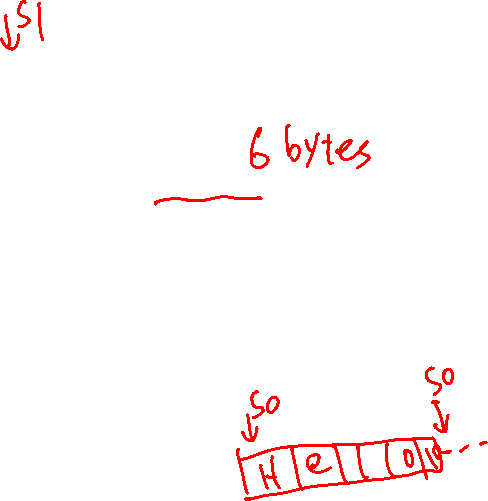 S1
6 bytes
S0
S0
H e l l o